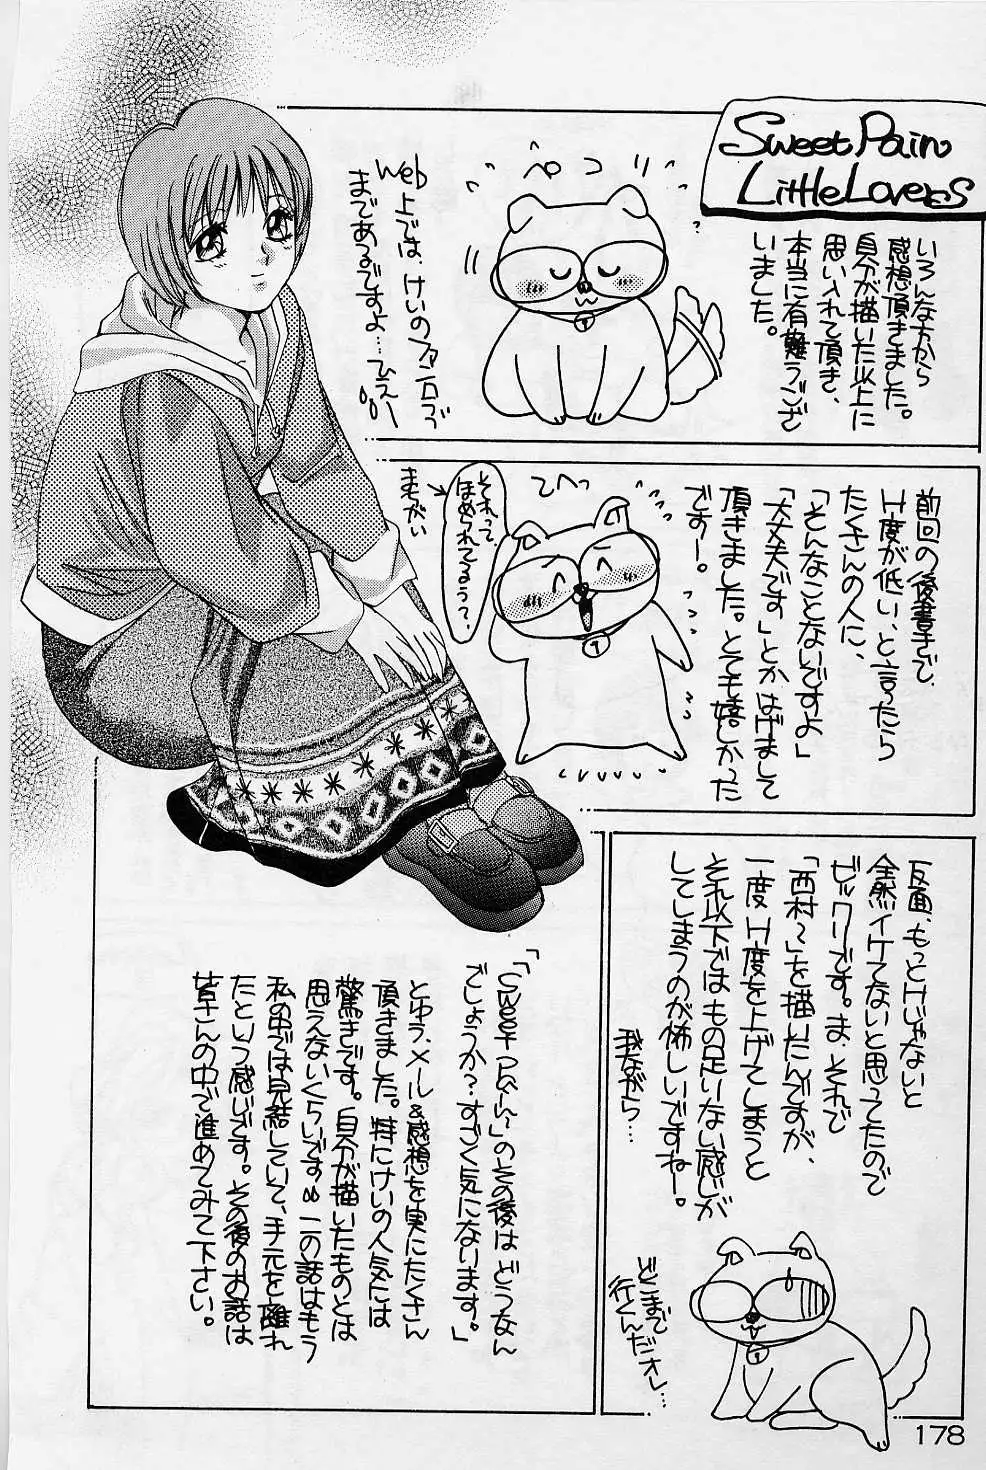 Sweet Pain
Little Lovers
いろんな方から
感想頂きました。
自分が描いた以上に
思い入れて頂き、
本当に有難うござ
いました。
ペコリ
Web上では、けいのファン石づ
まであるですよ…ひえー
前回の後書きで、
H度が低い、と言ったら
たくさんの人に、
「そんなことないですよ」
「大丈夫です」とかはげまして
頂きました。とても嬉しかった
ですー。
てへっ
それって、
ほめられてるぅ?、
まちがい
反面、もっとHじゃないと
全然イケてないと思ってたので
ビックリです。ま、それで
「西村〜」を描いたんですが、
一度H度を上げてしまうと
それ以下ではもの足りない感じが
してしまうのが怖しいですねー。
我ながら…
どこまで
行くんだオレ…
「「Sweet Pain〜」のその後はどうなん
でしょうか?すごく気になります。」
とゆう、メール&感想を実にたくさん
頂きました。特にけいの人気には
驚きです。自分が描いたものとは
思えないくらいです この話はもう
私の中では完結していて、手元を離れ
たという感じです。その後のお話は
皆さんの中で進めてみて下さい。
178